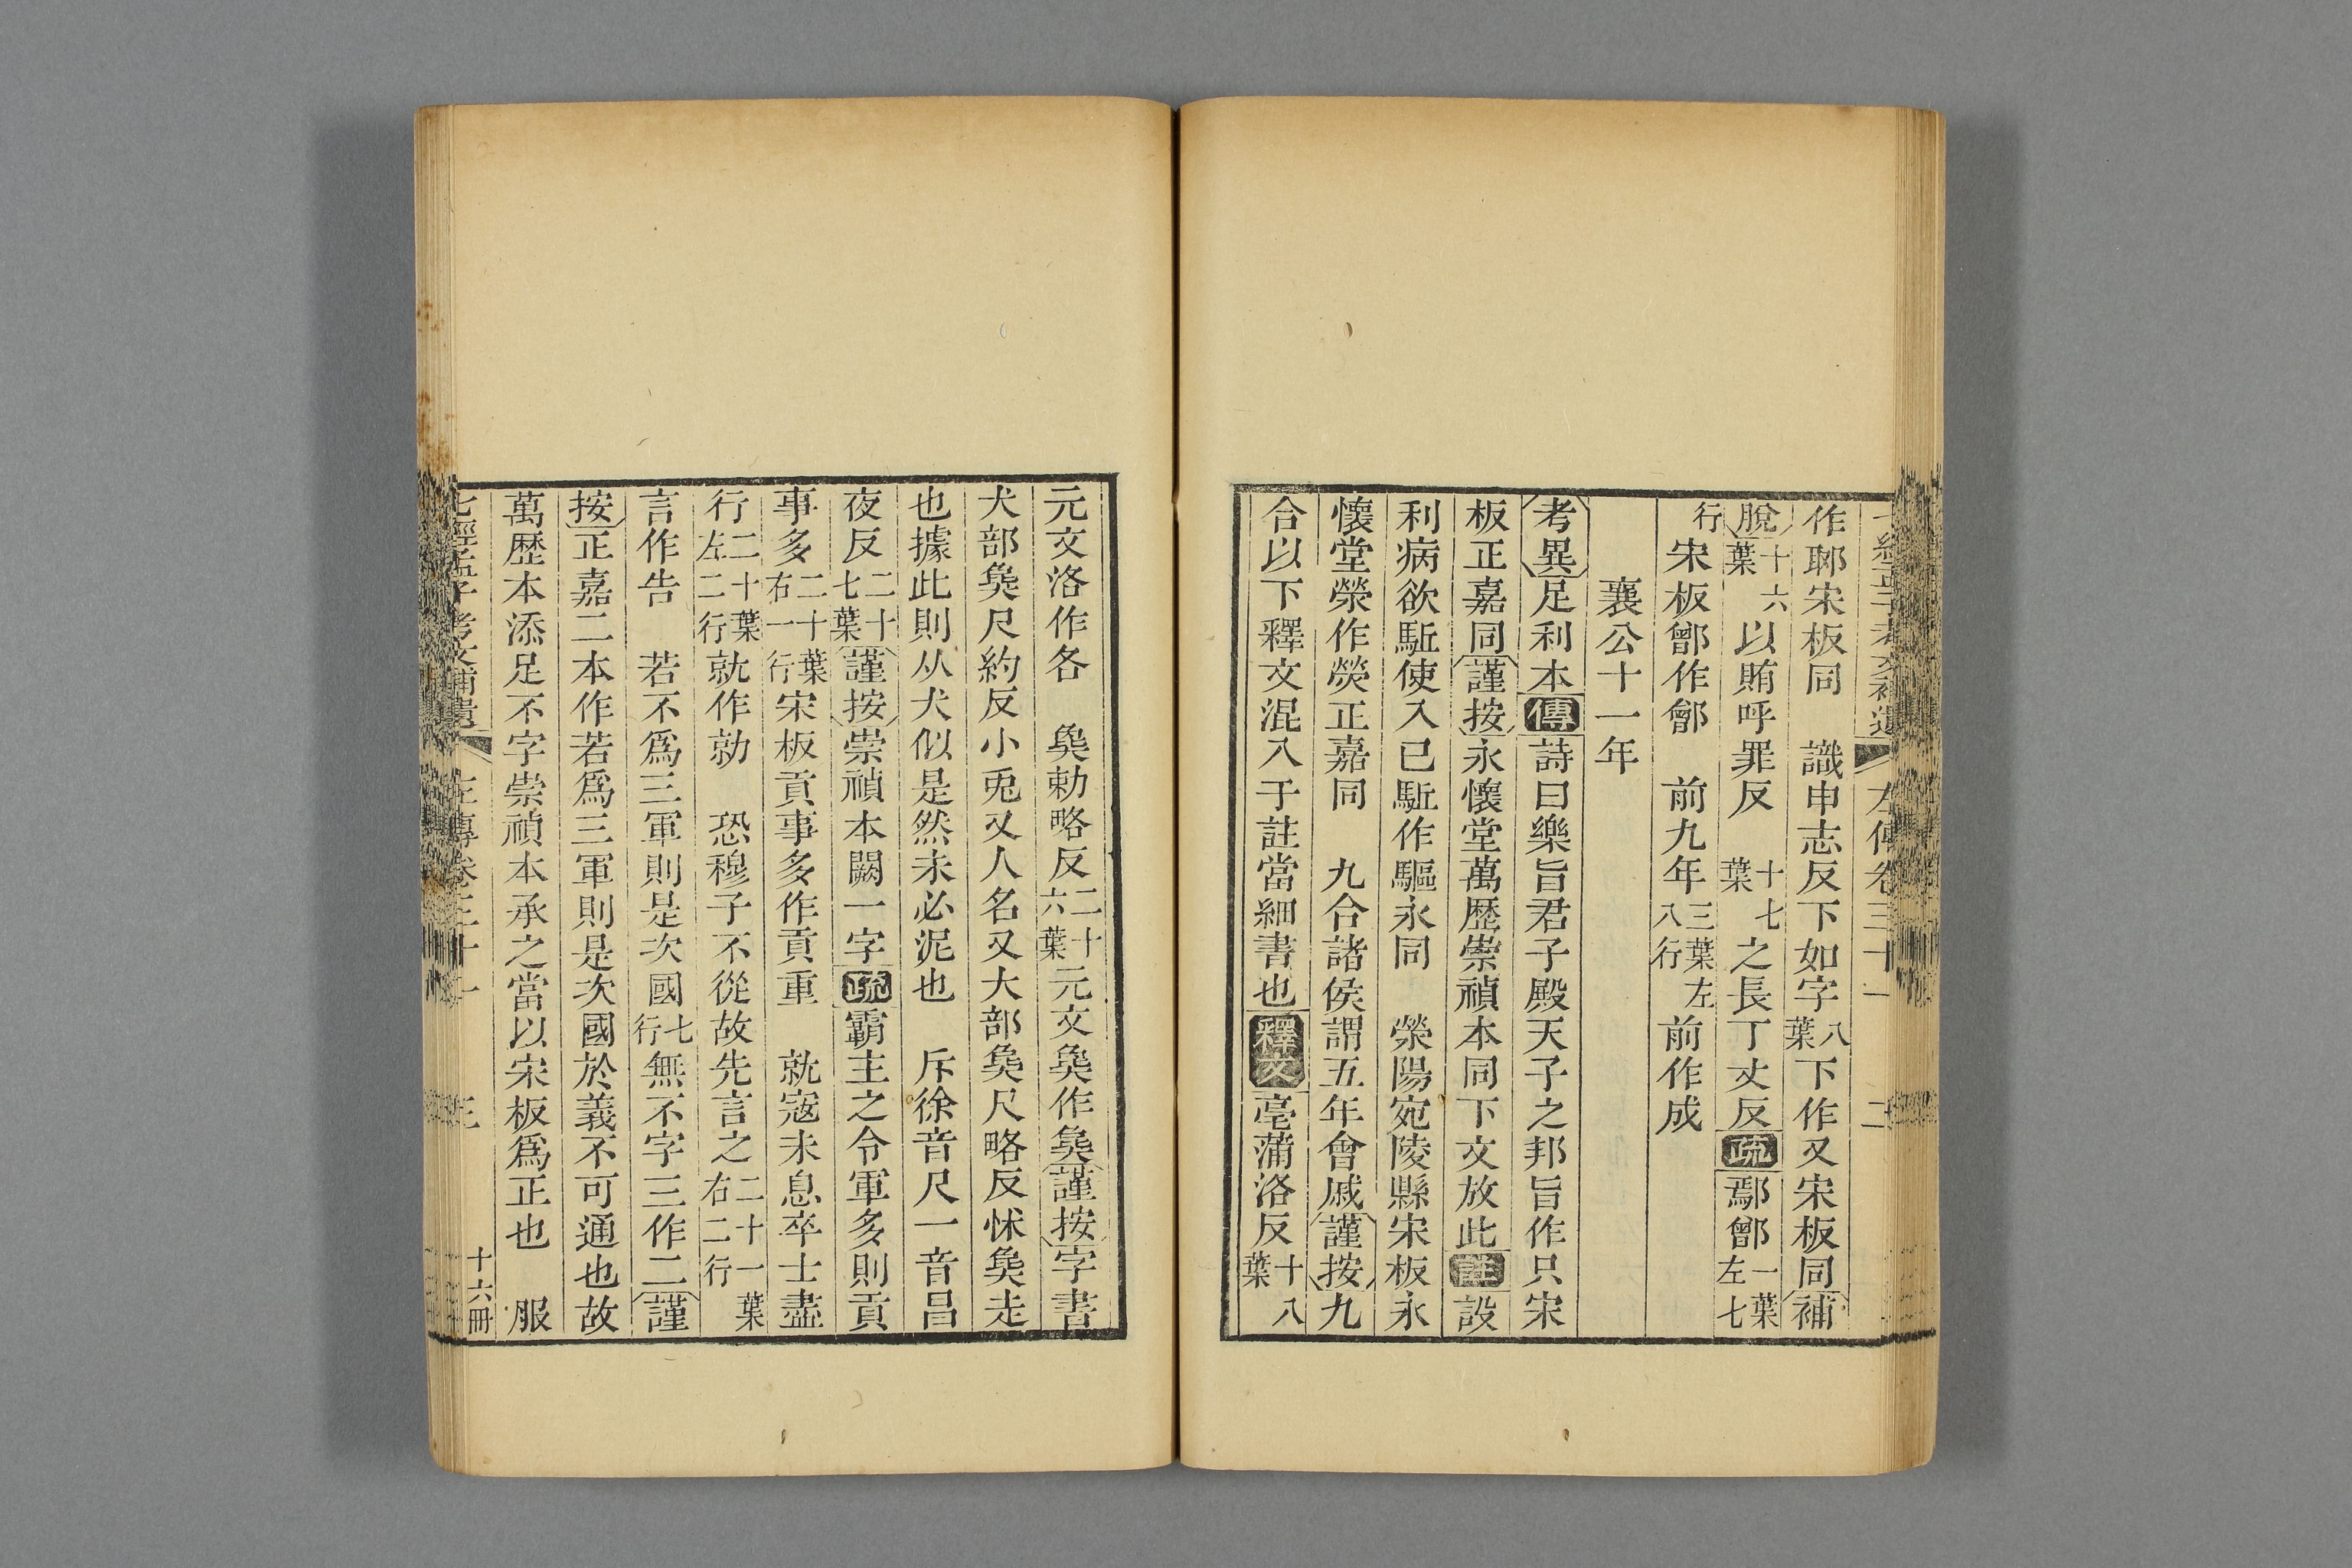 作耶宋板同　識申志反下如字八葉下作又宋板同補
脫十六葉以賄呼罪反　十七葉之長丁丈反疏鄢鄫一葉左七
行宋板鄫作鄶　前九年三葉左八行前作成
襄公十一年
考異足利本傳詩曰樂旨君子殿天子之邦旨作只宋
板正嘉同謹按永懷堂萬歷崇禎本同下文放此註設
利病欲駈使入已駈作驅永同　滎陽宛陵縣宋板永
懷堂滎作熒正嘉同　九合諸侯謂五年會戚謹按九
合以下釋文混入于註當細書也釋文亳蒲洛反十八葉
元文洛作各　㚟勅略反二十六葉元文㚟作㲋謹按字書
犬部㚟尺約反小兎又人名又大部㚟尺略反怵㚟走
也據此則从犬似是然未必泥也　斥徐音尺一音昌
夜反二十七葉謹按崇禎本闕一字疏霸主之令軍多則貢
事多二十葉右一行宋板貢事多作貢重　就寇未息卒士盡
行二十葉左二行就作勍　恐穆子不從故先言之二十一葉右二行
言作告　若不爲三軍則是次國七行無不字三作二謹
按正嘉二本作若爲三軍則是次國於義不可通也故
萬歷本添足不字崇禎本承之當以宋板爲正也　服
七經孟子考文補遺　左傳卷三十一　三　十六冊